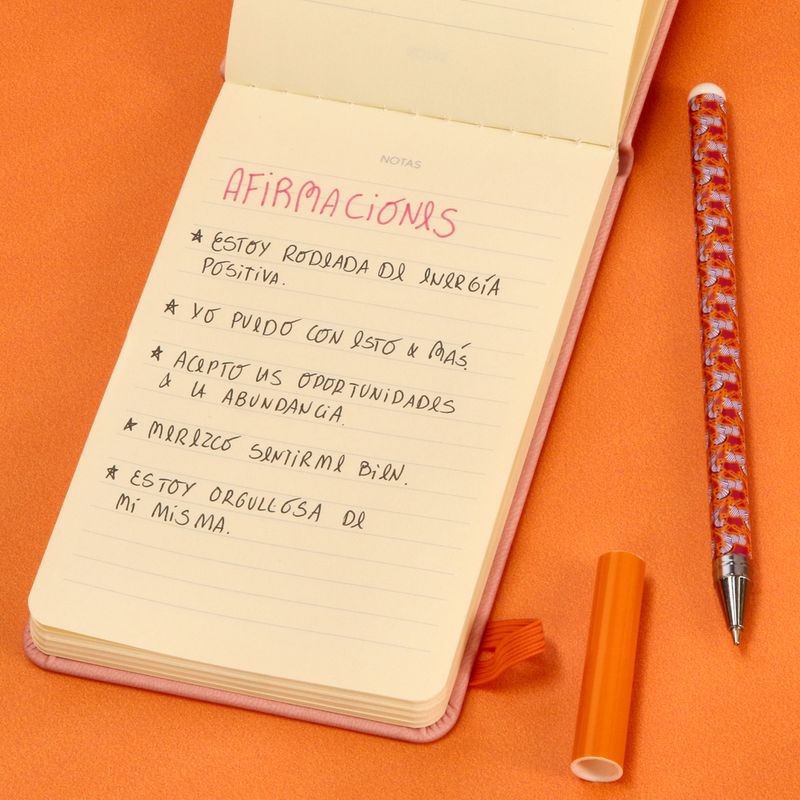 NOTAS
AFIRMACIONES
★ ESTOY RODEADA DE ENERGÍA
POSITIVA.
★ YO PUEDO CON ESTO & MÁS.
★ ACEPTO LAS OPORTUNIDADES
& LA ABUNDANCIA.
★ MEREZCO SENTIRME BIEN.
★ ESTOY ORGULLOSA DE
MI MISMA.